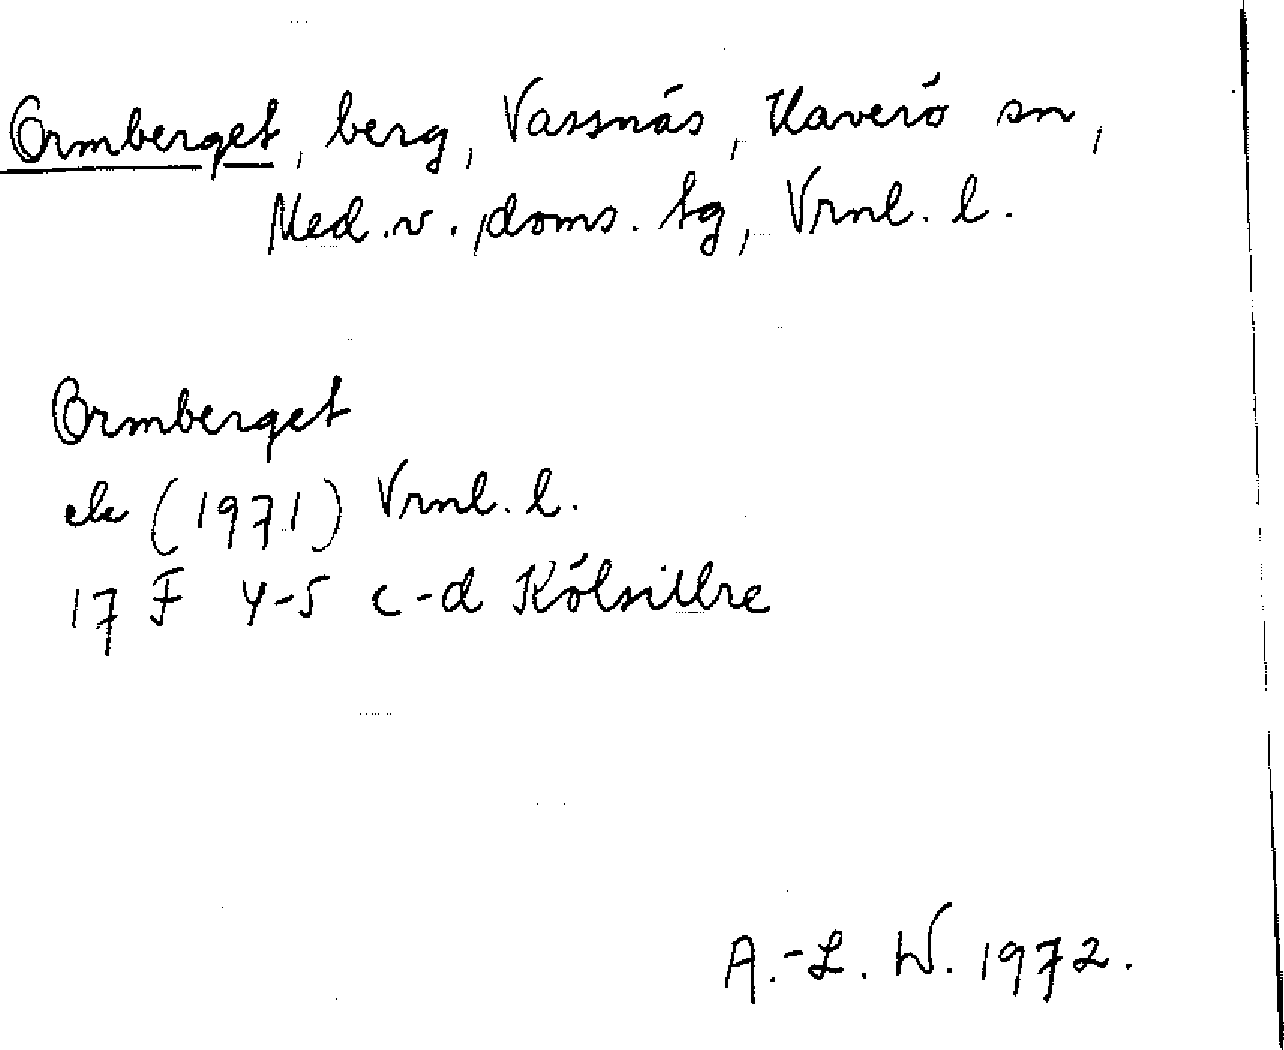 Ormberget, berg, Vassnäs, Haverö sn,
Med. v. doms. tg, Vrnl. l.
Ormberget
ek (1971) Vrnl. l.
17 F 4-5 c-d Kölsillre
A.-L. W. 1972.